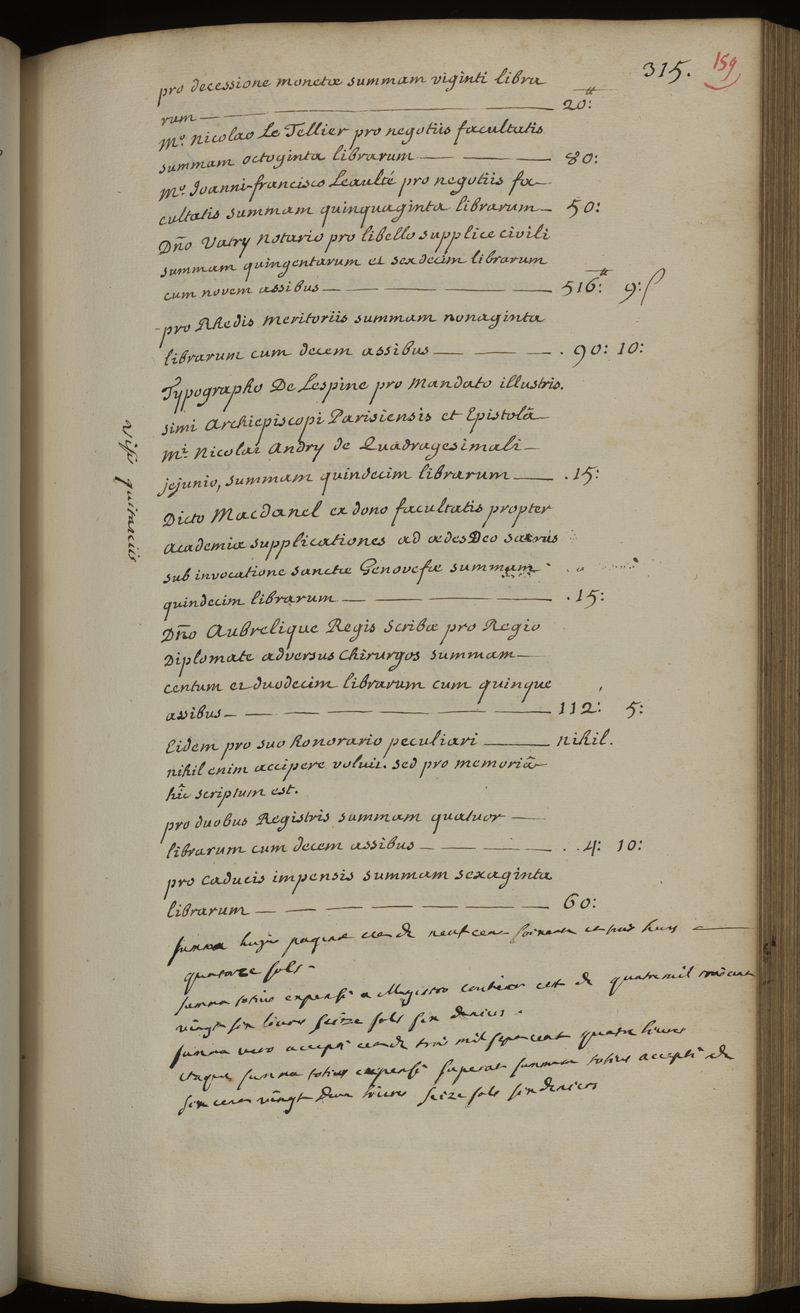 315. 159
pro decessione monetæ summam viginti libra
rum — 20:tt
Mo. Nicolao Le Tellier pro negotiis facultatis
summam octoginta librarum — 80:
Mo. Joanni-francisco Leaulté pro negotiis fa-
cultatis summam quinquaginta librarum — 50:
Dño Vatry Notario pro libello supplice civili
summam quingentarum et sexdecim librarum
cum novem assibus — 516:tt 9:ſ
pro Rhedis meritoriis summam nonaginta
librarum cum decem assibus — . 90: 10:
Typographo De Lespine pro Mandato illustris.
simi Archiepiscopi Parisiensis et Epistolâ
Mi. Nicolai Andry de Quadragesimali
jejunio, summam quindecim librarum — .15:
Dicto Macdanel ex dono facultatis propter
Academiæ supplicationes ad ædes Deo sacras
sub invocatione sanctæ Genovefæ summam
quindecim librarum — .15:
Dño Aubrelique Regis Scribæ pro Regio
Diplomate adversus Chirurgos summam
centum et duodecim librarum cum quinque
assibus — 112: 5:
Eidem pro suo honorario peculiari — nihil.
nihil enim accipere voluit. sed pro memoriâ
hîc scriptum est.
pro duobus Registris summam quatuor
librarum cum decem assibus — . .4: 10:
pro caducis impensis summam sexaginta
librarum — 60:
summa hujus paginæ est de neuf cent soixante et huit livres
quatorze sols
summa totius expensi a Magistro est de quatre mil
vingt six livres seize sols six deniers.
summa vero accepti est de trois mil sept cent quatre livres
itaque summa totius expensi superat summam totius accepti de
six cent vingt deux livres seize sols six deniers
visis quitanciis